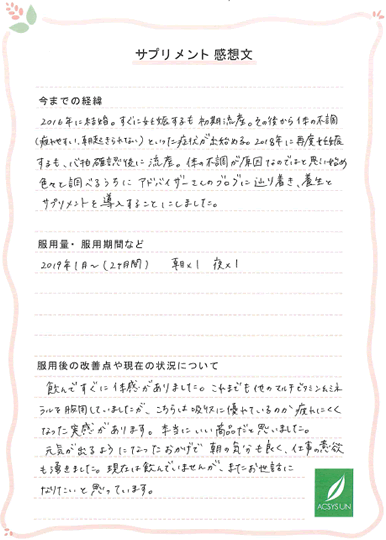 サプリメント 感想文
今までの経緯
2016年に結婚。すぐに妊娠するも初期流産。その後から体の不調
(疲れやすい、朝起きられない)といった症状が出始める。2018年に再度妊娠
するも、心拍確認後に流産。体の不調が原因なのではと思い始め
色々と調べるうちにアドバイザーさんのブログに辿り着き、養生と
サプリメントを導入することにしました。
服用量・服用期間など
2019年1月〜(2ヶ月間) 朝×1 夜×1
服用後の改善点や現在の状況について
飲んですぐに体感がありました。これまでも他のマルチビタミン&ミネ
ラルを服用していましたが、こちらは吸収に優れているのか疲れにくく
なった実感があります。本当にいい商品だと思いました。
元気が出るようになったおかげで朝の気分も良く、仕事の意欲
も湧きました。現在は飲んでいませんが、またお世話に
なりたいと思っています。
ACSYSUN